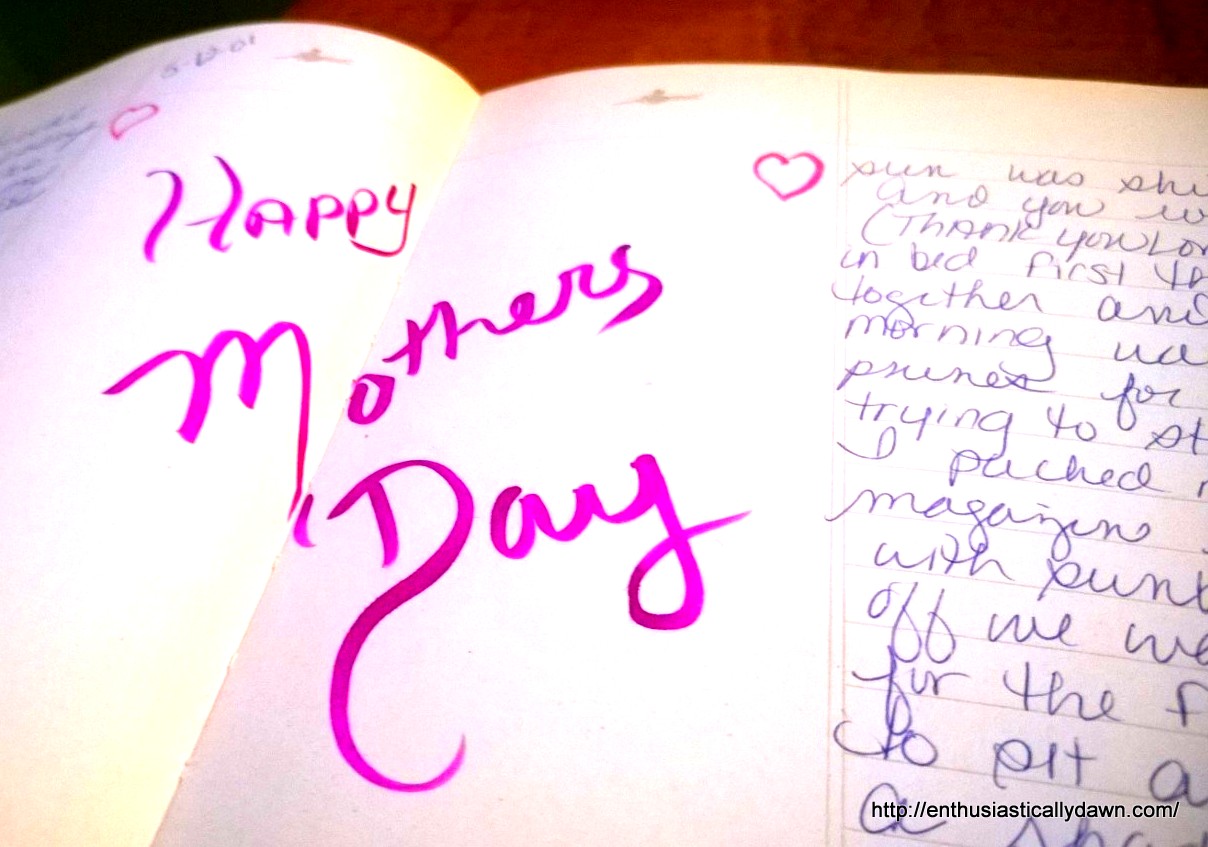 5-12-01
Happy
Mothers
Day
sun was shi
and you w
(Thank you Lor
in bed first t
together and
morning wa
prunes for
trying to st
I packed
magazines
with sunb
off we we
for the f
to sit a
a shad
http://enthusiasticallydawn.com/